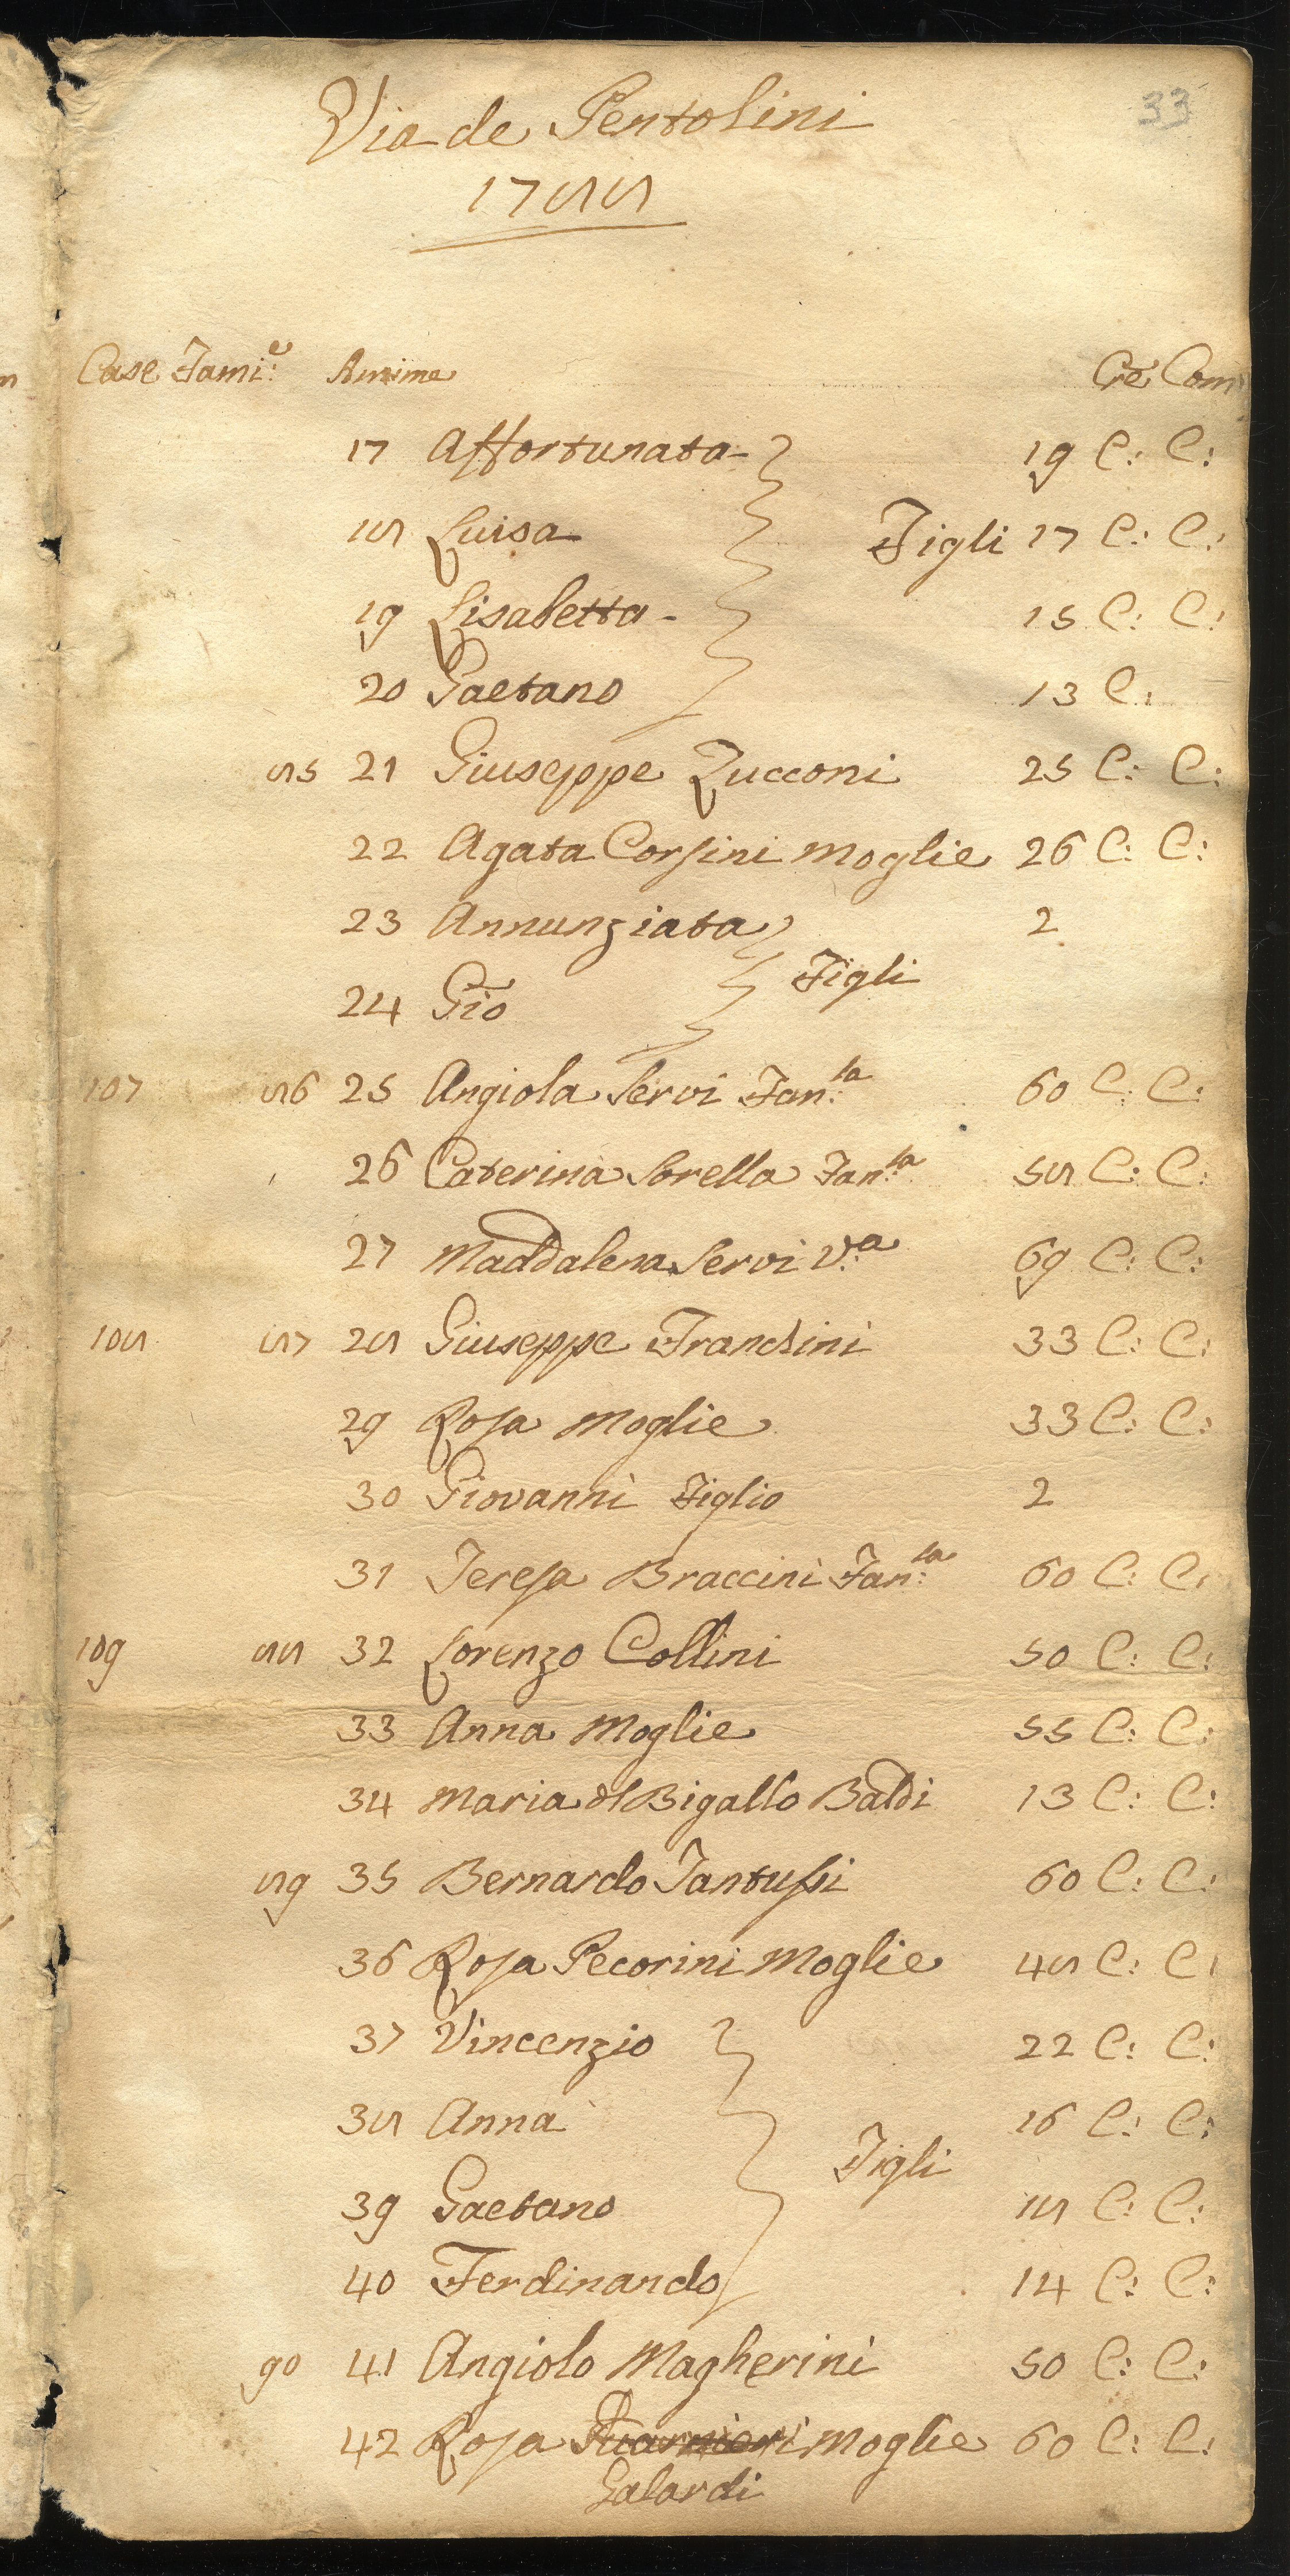 33
Via de Pentolini
1788
Case Fami:e Anime Cre Com
17 Affortunata 19 C: C:
18 Luisa Figli 17 C: C:
19 Lisabetta 15 C: C:
20 Gaetano 13 C:
85 21 Giuseppe Zucconi 25 C: C:
22 Agata Corsini Moglie 26 C: C:
23 Annunziata 2
Figli
24 Gio
107 86 25 Angiola Servi Fan:la 60 C: C:
26 Caterina Sorella Fan:la 58 C: C:
27 Maddalena Servi V:a 69 C: C:
108 87 28 Giuseppe Franchini 33 C: C:
29 Rosa Moglie 33 C: C:
30 Giovanni Figlio 2
31 Teresa Braccini Fan:la 60 C: C:
109 88 32 Lorenzo Collini 50 C: C:
33 Anna Moglie 55 C: C:
34 Maria dl Bigallo Baldi 13 C: C:
89 35 Bernardo Fantussi 60 C: C:
36 Rosa Pecorini Moglie 48 C: C:
37 Vincenzio 22 C: C:
38 Anna 16 C: C:
Figli
39 Gaetano 18 C: C:
40 Ferdinando 14 C: C:
90 41 Angiolo Magherini 50 C: C:
42 Rosa Moglie 60 C: C:
Galardi